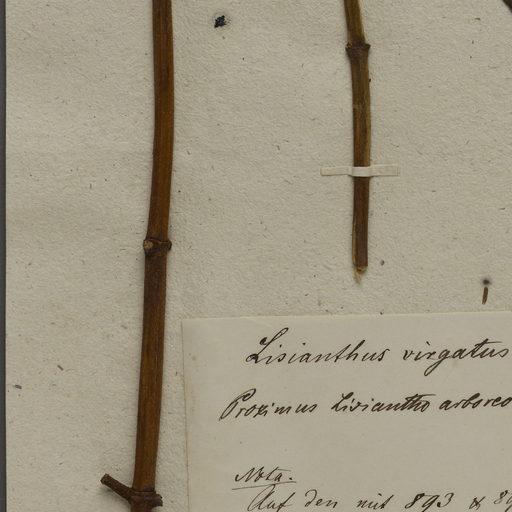 Lisianthus virgatus
Proximus Lisiantho arboreo
Nota.
Auf den mit 893 & 89